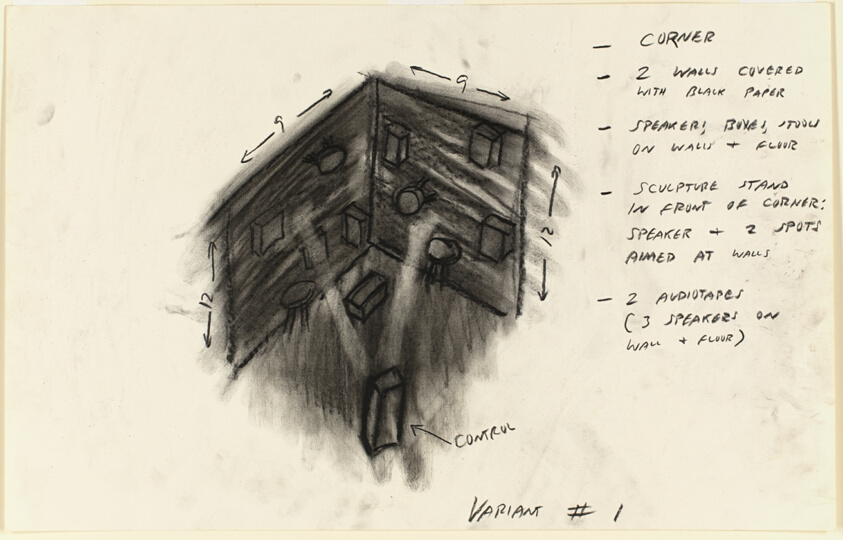 - CORNER
- 2 WALLS COVERED
WITH BLACK PAPER
- SPEAKERS, BOXES, STOOLS
ON WALLS + FLOOR
- SCULPTURE STAND
IN FRONT OF CORNER:
SPEAKER + 2 SPOTS
AIMED AT WALLS
- 2 AUDIOTAPES
(3 SPEAKERS ON
WALL + FLOOR)
9
9
12
12
CONTROL
VARIANT # 1